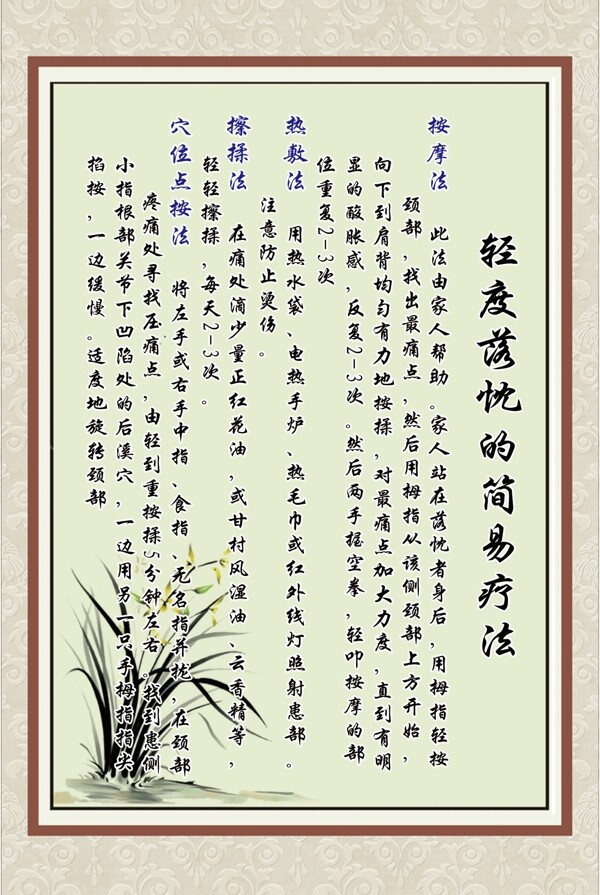 轻度落忱的简易疗法
按摩法 此法由家人帮助。家人站在落忱者身后，用拇指轻按
颈部，找出最痛点，然后用拇指从该侧颈部上方开始，
向下到肩背均匀有力地按揉，对最痛点加大力度，直到有明
显的酸胀感，反复2-3次。然后两手握空拳，轻叩按摩的部
位重复2-3次
热敷法 用热水袋、电热手炉、热毛巾或红外线灯照射患部。
注意防止烫伤。
擦揉法 在痛处滴少量正红花油，或甘村风湿油、云香精等，
轻轻擦揉，每天2-3次。
穴位点按法 将左手或右手中指、食指、无名指并拢，在颈部
疼痛处寻找压痛点，由轻到重按揉5分钟左右。找到患侧
小指根部关节下凹陷处的后溪穴，一边用另一只手拇指指尖
掐按，一边缓慢。适度地旋转颈部